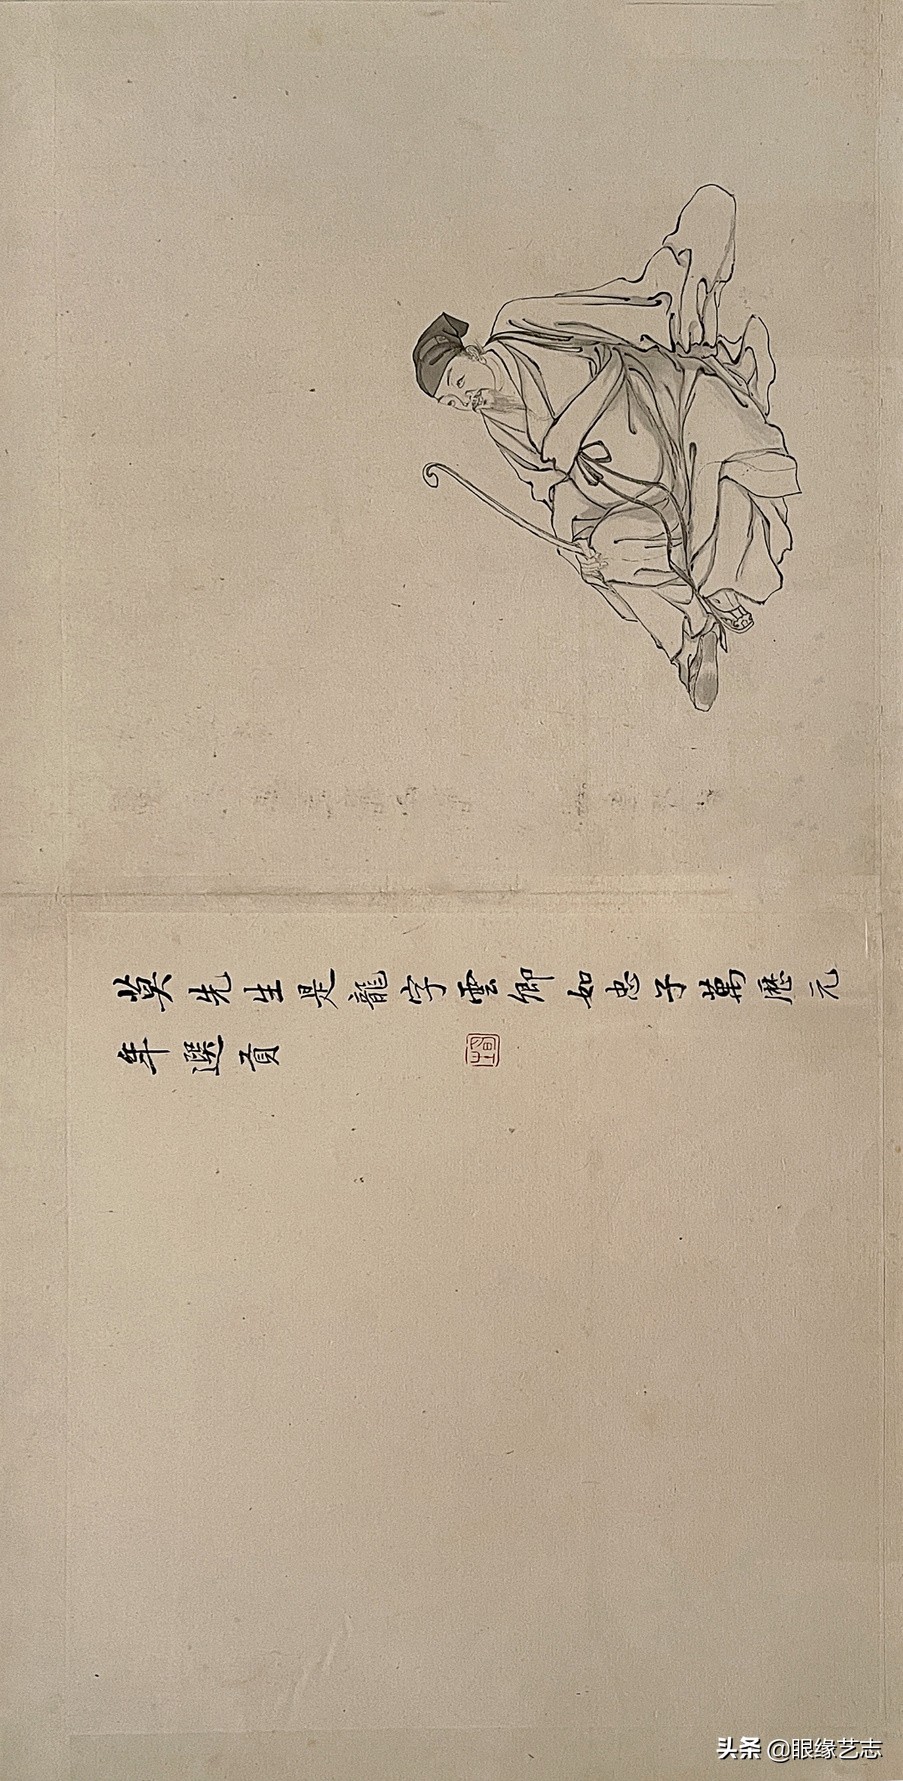 莫先生是龍字雲卿如忠子萬歷元
年選貢
头条 @眼缘艺志